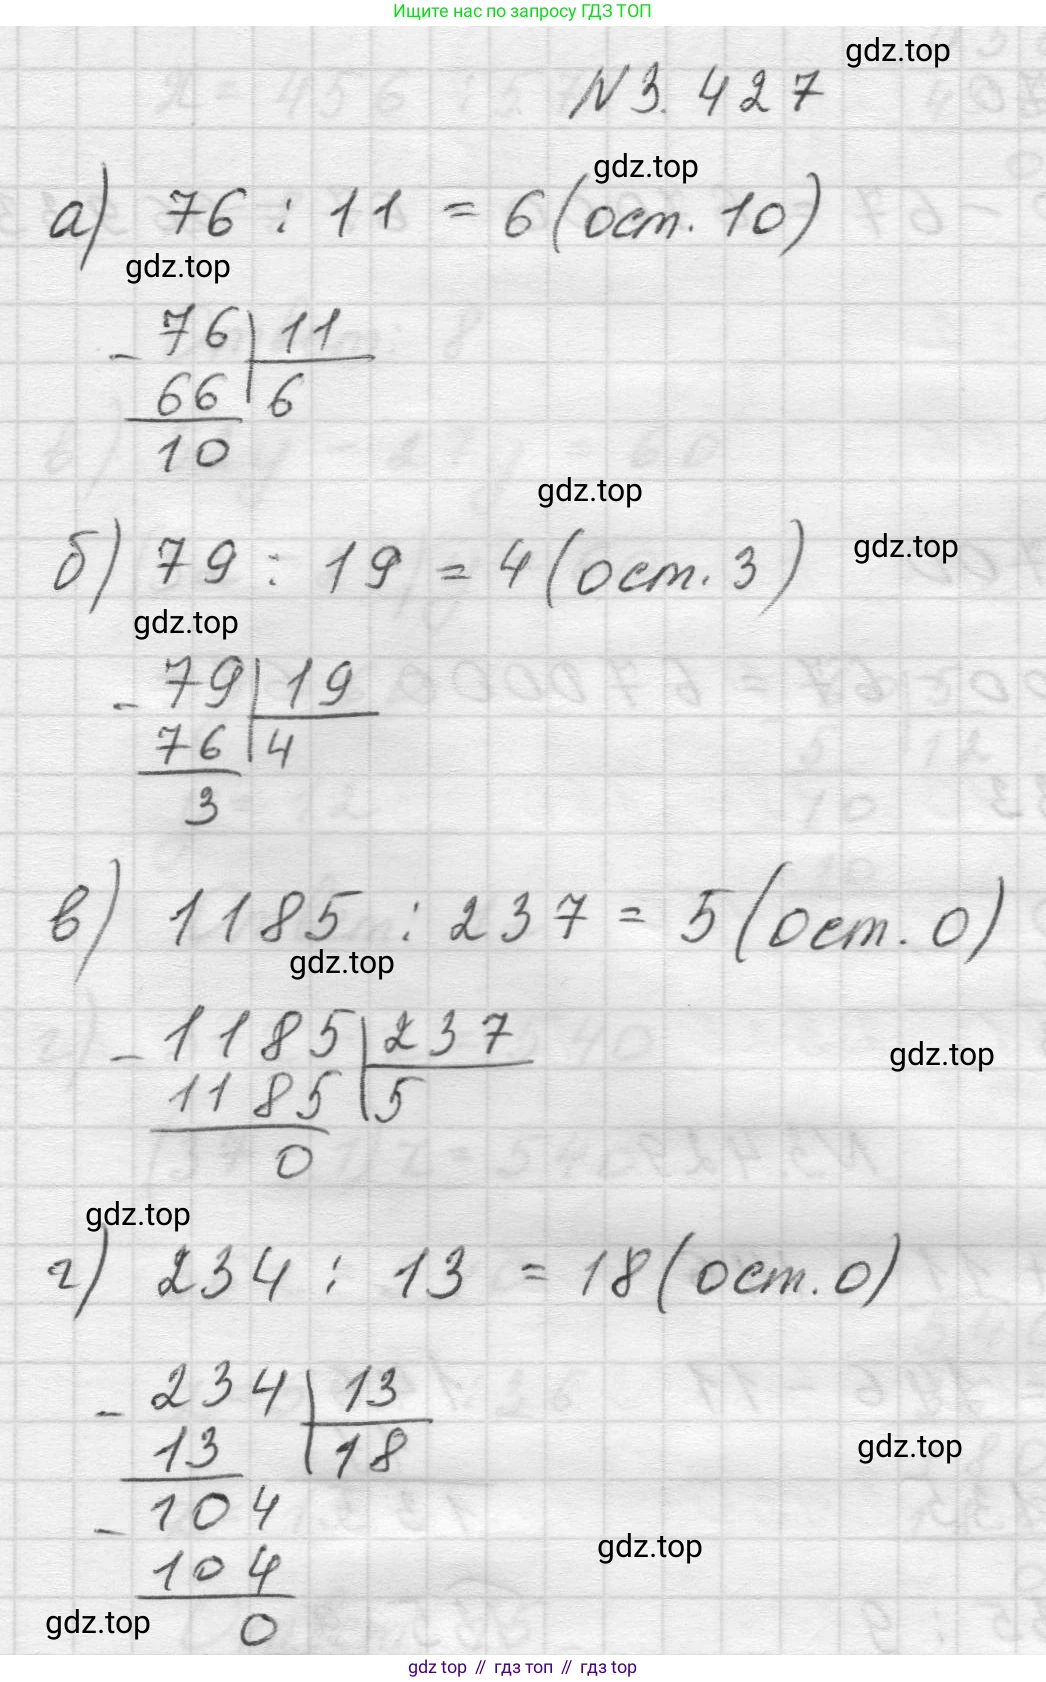 Ищите нас по запросу ГДЗ ТОП
gdz.top
N 3.427
gdz.top
а) 76 : 11 = 6 (ост. 10)
gdz.top
- 76 | 11
66 | 6
10
gdz.top
б) 79 : 19 = 4 (ост. 3)
gdz.top
gdz.top
- 79 | 19
76 | 4
3
в) 1185 : 237 = 5 (ост. 0)
gdz.top
- 1185 | 237
gdz.top
1185 | 5
0
gdz.top
г) 234 : 13 = 18 (ост. 0)
- 234 | 13
13 | 18
gdz.top
- 104
gdz.top
104
gdz.top
0
gdz top // гдз топ // gdz top